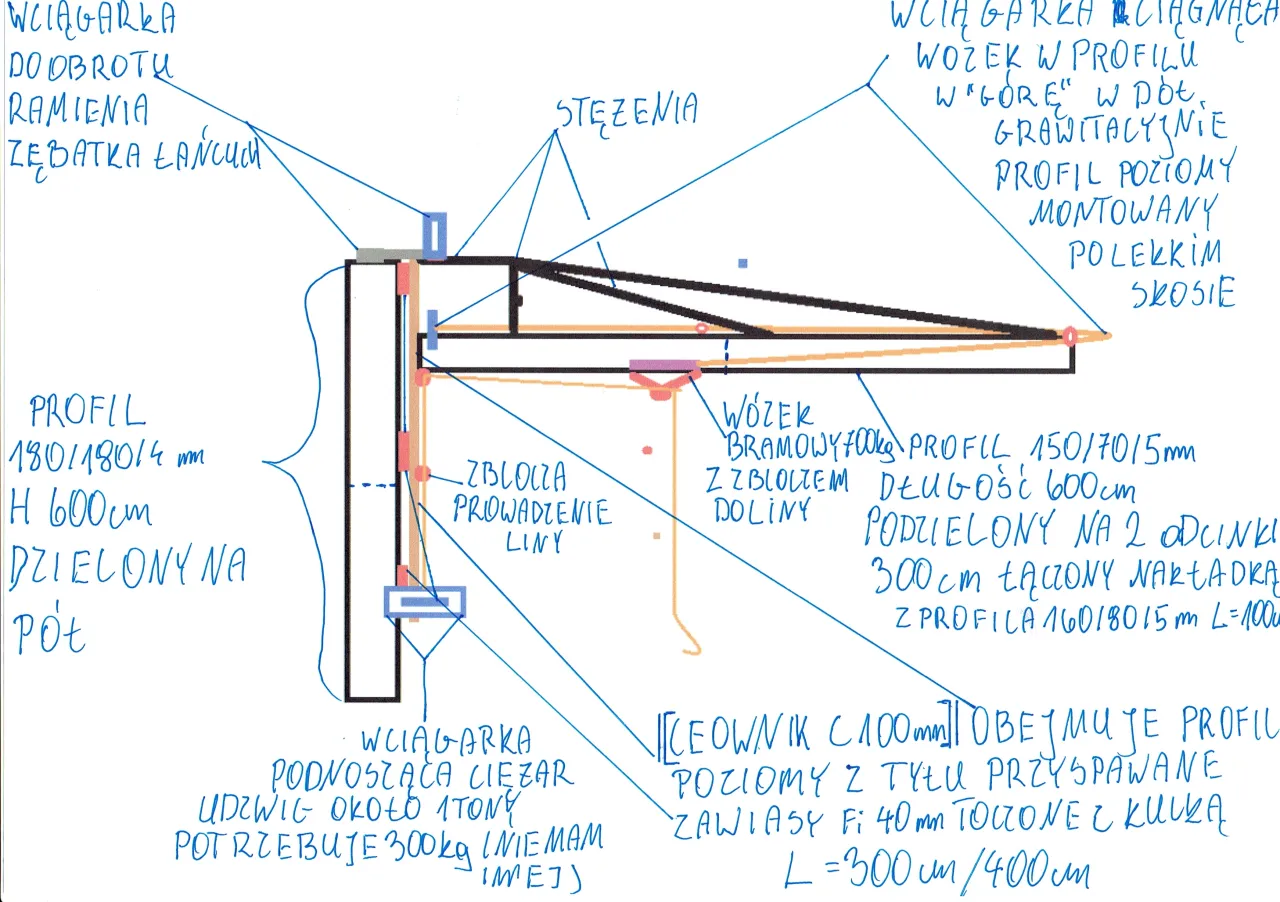 WCIĄGARKA
DO OBROTU
RAMIENIA
ZĘBATKA ŁAŃCUCH
STĘŻENIA
WCIĄGARKA CIĄGNĄCA
WÓZEK W PROFILU
W "GÓRĘ" W DÓŁ
GRAWITACYJNIE
PROFIL POZIOMY
MONTOWANY
PO LEKKIM
SKOSIE
PROFIL
180/180/4 mm
H 600cm
DZIELONY NA
PÓŁ
ZBLOCZA
PROWADZENIE
LINY
WÓZEK
BRAMOWY 700kg
Z ZBLOCZEM
DOLINY
PROFIL 150/70/5mm
DŁUGOŚĆ 600cm
PODZIELONY NA 2 ODCINKI
300cm ŁĄCZONY NAKŁADKĄ
Z PROFILA 160/80/5m L=100
WCIĄGARKA
PODNOSZĄCA CIĘŻAR
UDZWIG OKOŁO 1TONY
POTRZEBUJE 300kg (NIEMAM
INNEJ)
[CEOWNIK C100mm] OBEJMUJE PROFIL
POZIOMY Z TYŁU PRZYSPAWANE
ZAWIASY Fi 40mm TOCZONE Z KULKĄ
L=300cm/400cm